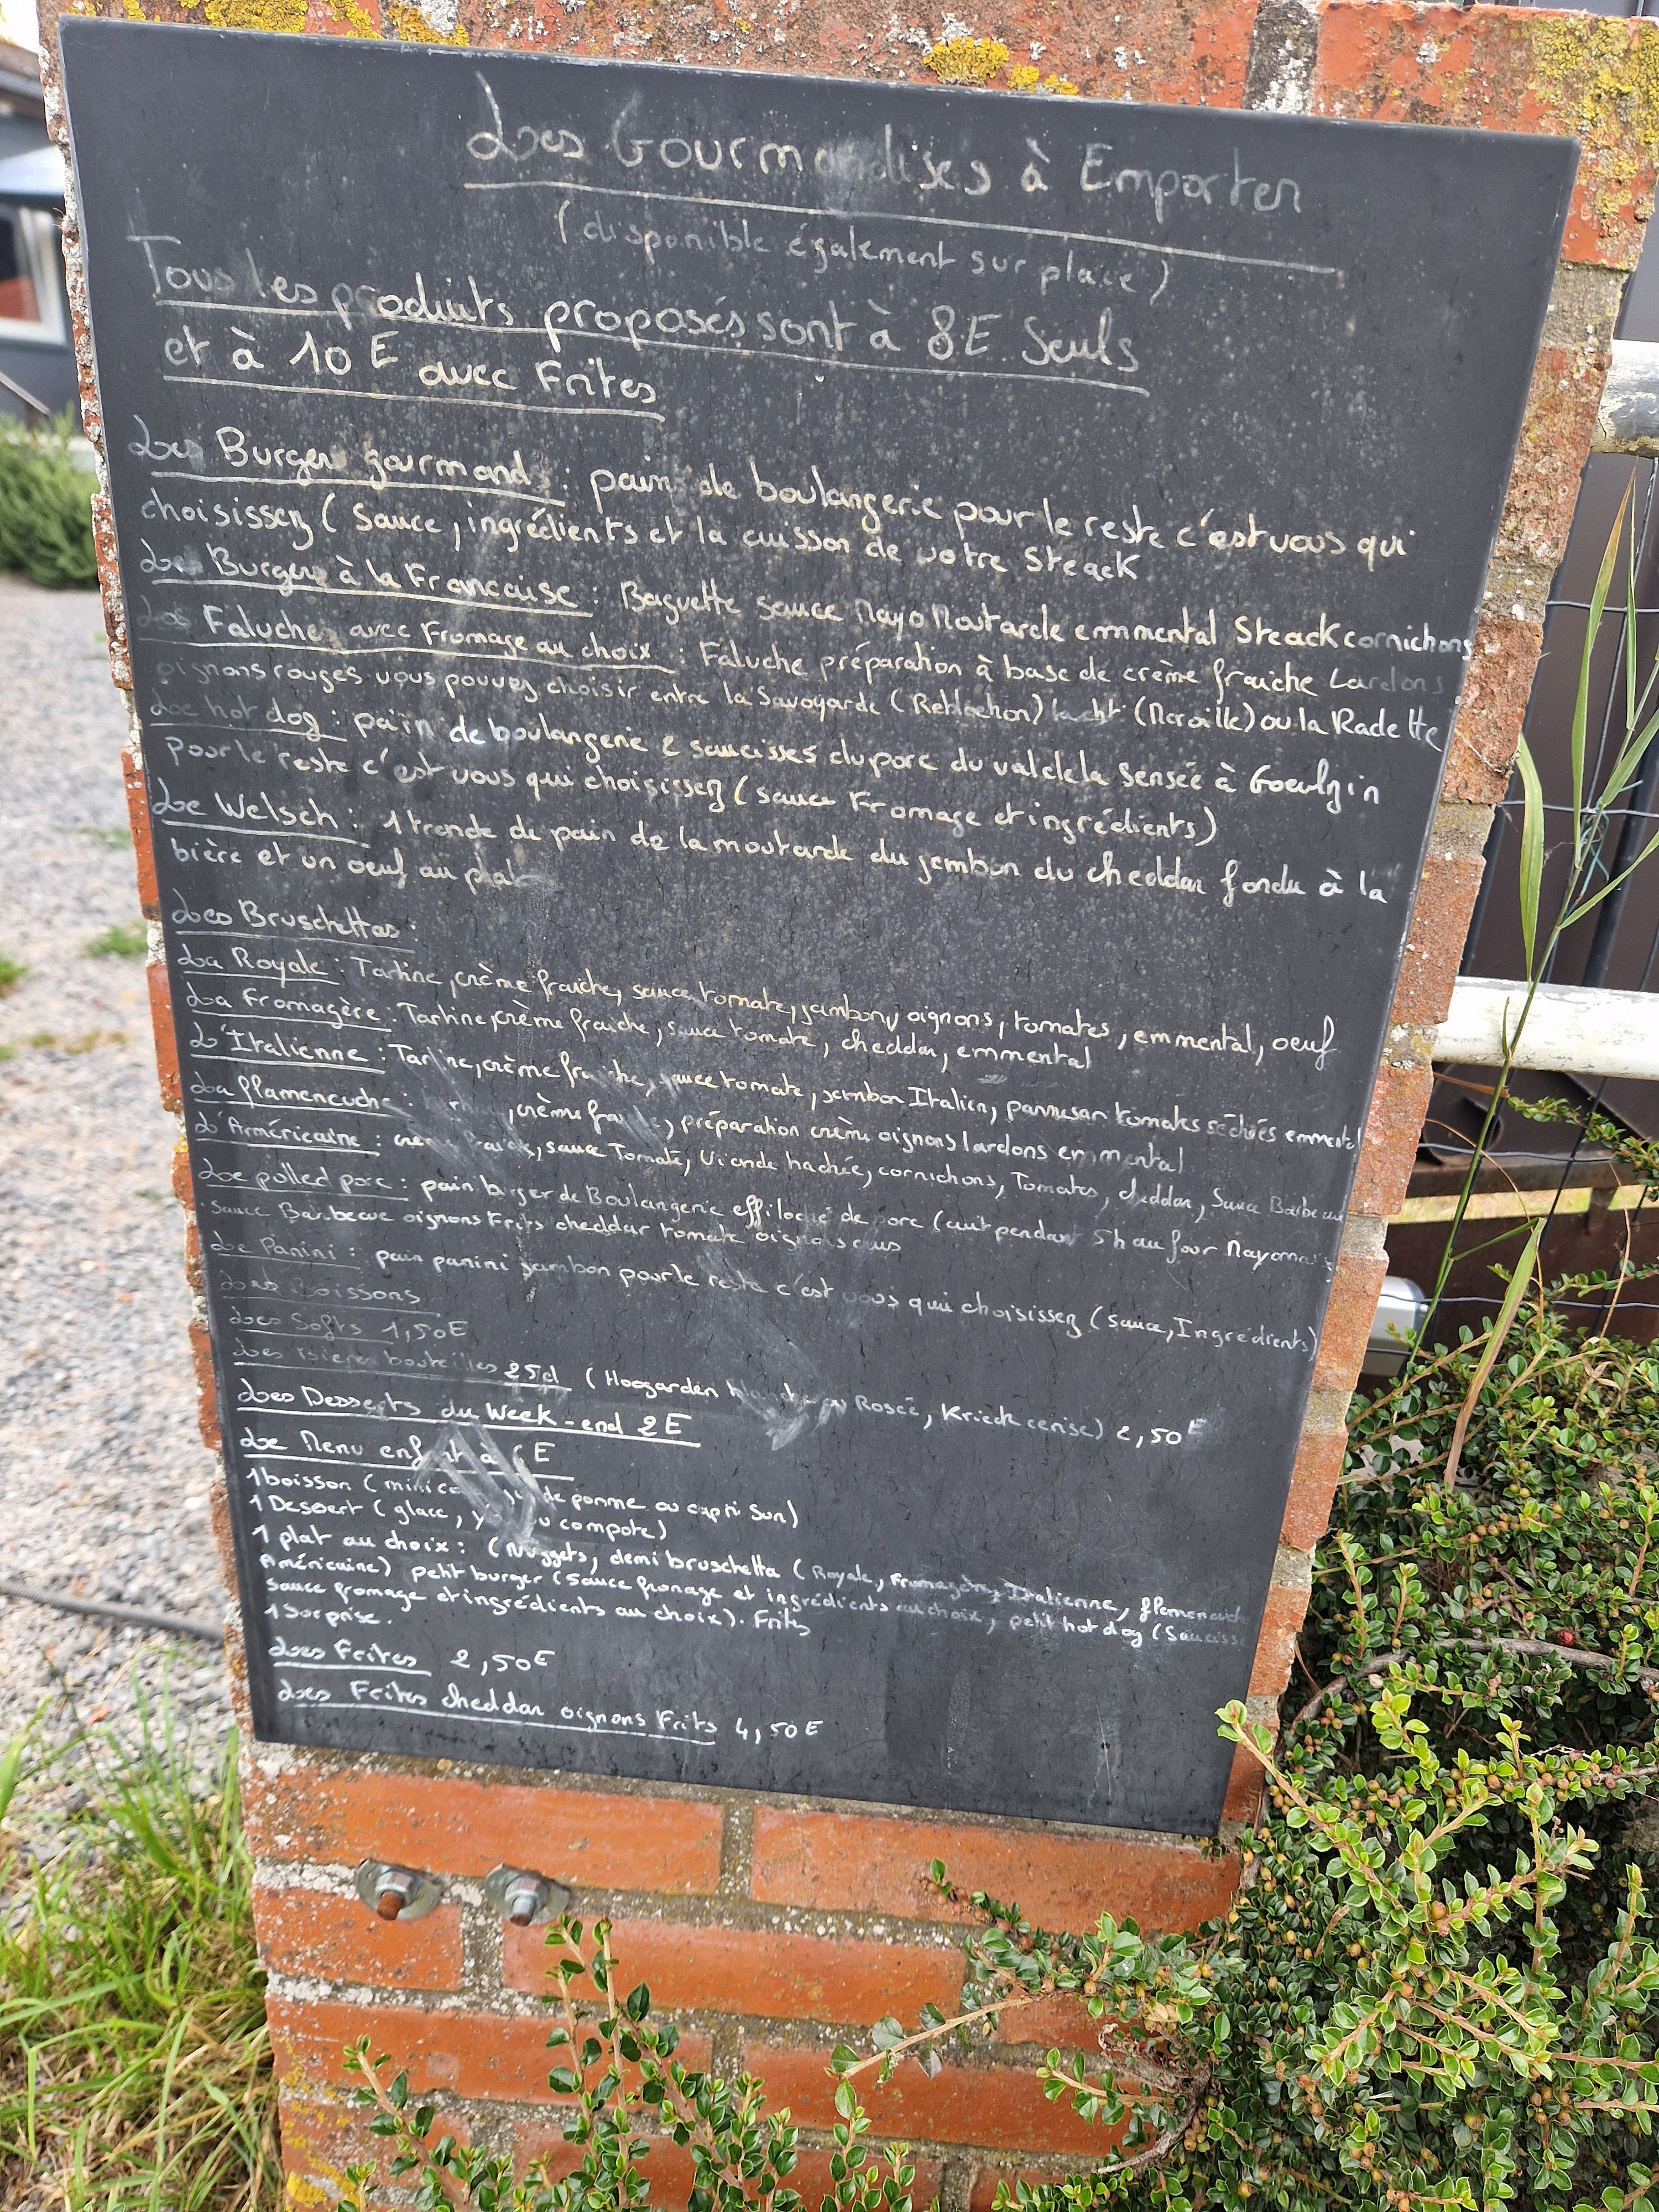 Les Gourmandises à Emporter
(disponible également sur place)
Tous les produits proposés sont à 8E Seuls
et à 10E avec Frites
Les Burgers gourmands : pains de boulangerie pour le reste c'est vous qui
choisissez (Sauce, ingrédients et la cuisson de votre Steack
Le Burger à la Francaise : Baguette sauce Mayo Moutarde emmental Steack cornichons
Les Faluches avec Fromage au choix : Faluche préparation à base de crème fraiche Lardons
oignons rouges vous pouvez choisir entre la Savoyarde (Reblochon) (Maroille) ou la Radette
Le hot dog : pain de boulangerie 2 saucisses du porc du val de la Sensée à Goeulzin
pour le reste c'est vous qui choisissez (sauce Fromage et ingrédients)
Le Welsch : 1 trande de pain de la moutarde du jambon du cheddar fondu à la
bière et un oeuf au plat
Les Bruschettas :
La Royale : Tartine, crème fraiche, sauce tomate, jambon, oignons, tomates, emmental, oeuf
La Fromagère : Tartine, crème fraiche, sauce tomate, cheddar, emmental
L'Italienne : Tartine, crème fraiche, sauce tomate, jambon Italien, parmesan tomates séchées emmental
La flamencuche : crème fraiche, préparation crème oignons lardons emmental
L'Arméricaine : crème fraiche, sauce Tomate, Viande hachée, cornichons, Tomates, cheddar, Sauce Barbecue
Le polled porc : pain burger de Boulangerie effiloché de porc (cuit pendant 5h au four Mayonnaise
Sauce Barbecue oignons Frits cheddar tomate oignons crus
Le Panini : pain panini jambon pour le reste c'est vous qui choisissez (sauce, Ingrédients)
Les Boissons
Les Softs 1,50E
Les Bieres bouteilles 25cl (Hoegarden blanche ou Rosée, Krieck cerise) 2,50E
Les Desserts du Week-end 2E
Le Menu enfant à E
1 boisson (mini de pomme ou capri Sun)
1 Dessert (glace, ou compote)
1 plat au choix : (Nuggets, demi bruschetta (Royale, Fromagère, Italienne, flamencuche
Américaine) petit burger (sauce fromage et ingrédients au choix, petit hot dog (Saucisse
Sauce fromage et ingrédients au choix). Frites
1 Sorprise.
Les Frites 2,50E
Les Frites cheddar oignons Frits 4,50E